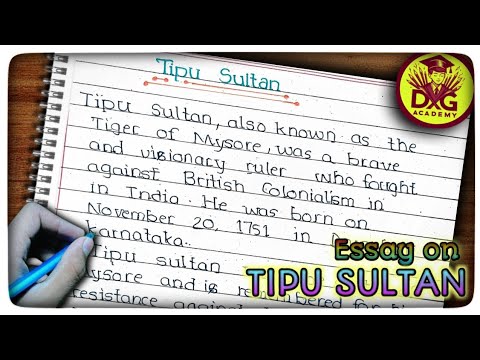 Tipu Sultan
Tipu Sultan, also known as the
Tiger of Mysore, was a brave
and visionary ruler who fought
against British Colonialism in
in India. He was born on
November 20, 1751 in
Karnataka.
Tipu sultan
Mysore and is remembered for
resistance against
DXG
ACADEMY
Essay on
TIPU SULTAN